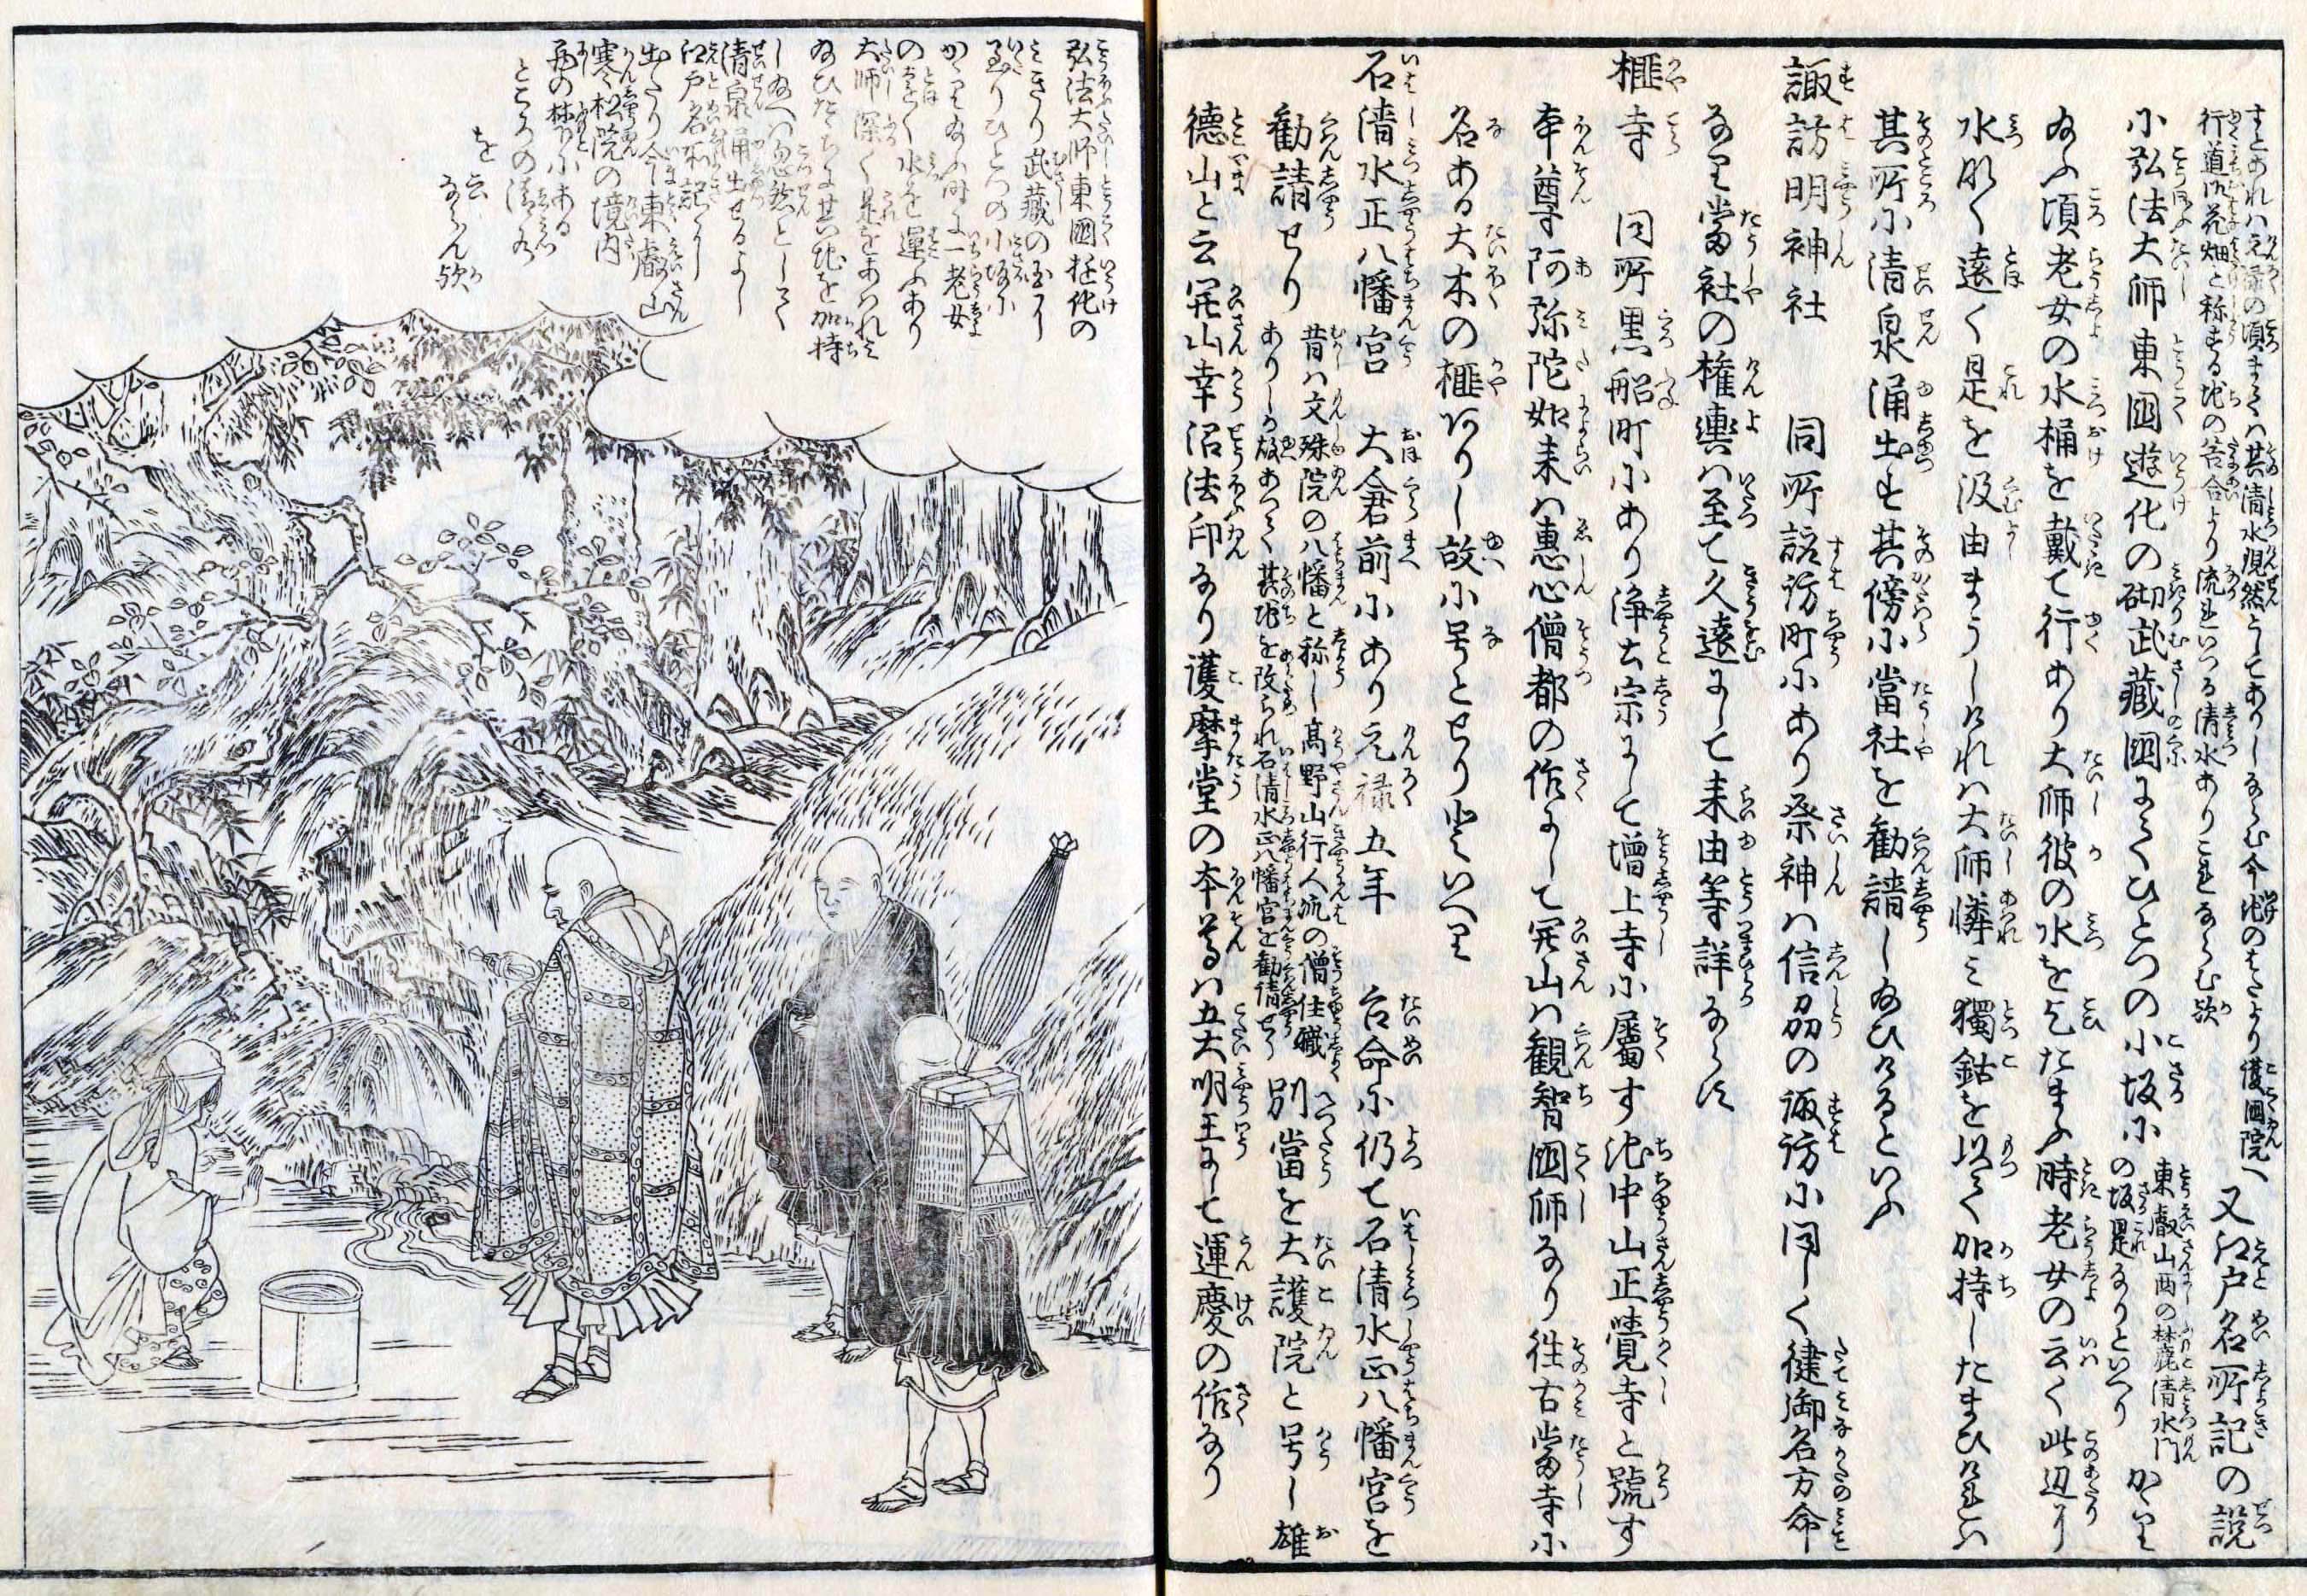 すとあれハ元禄の頃まてハ其清水現然としてありしならむ今此のきたより護国院へ
行道御花畑と称する地の苦合より流れいつる清水ありこれならむ歟
又江戸名所記の説
小弘法大師東國遊化の砌武藏國にてひとつの小坂小
東叡山西の林麓清水門
の坂是なりといへり
かゝり
給ふ頃老女の水桶を戴て行あり大師彼の水を乞たまふ時老女の云く此辺り
水脈く遠く是を汲由まうしけれハ大師憐ミ獨鈷を以て加持したまひけれハ
其所小清泉涌出す其傍小當社を勧請し給ひけるといふ
諏訪明神社　同所諏訪町小あり祭神ハ信刕の諏訪小同しく健御名方命
なり當社の権輿ハ至て久遠にして来由等詳ならす
榧寺　同所黒船町小あり浄土宗にして増上寺小属す池中山正覚寺と號す
本尊阿弥陀如来ハ惠心僧都の作にして開山ハ観智國師なり往古當寺小
名ある大木の榧ありし故小号とせり
石清水正八幡宮　大倉前小あり元禄五年　台命小仍て石清水正八幡宮を
勧請せり
昔ハ文殊院の八幡と称し高野山行人派の僧住職
ありしか故あつて其地を改られ石清水正八幡宮を勧請せり
別當を大護院と号し雄
德山と云開山幸沼法印なり護摩堂の本尊ハ五大明王にして運慶の作なり
弘法大師東國遊化の
ミきり武藏の国に
いたりひとつの小坂小
かゝり給ふ時に一老女
の遠く水を運ふあり
大師深く是をあハれミ
給ひたちに其地を加持
し給へハ忽然として
清泉涌出せるよし
江戸名所記に
出たり今東叡山
寒松院の境内
西の林下小ある
ところの清水
を云
ならん歟